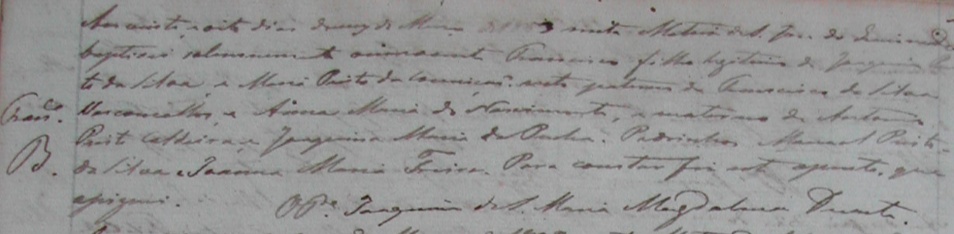 Aos vinte, e oito dias do mez de Março nesta Matriz de S. Jo.
baptisei solemnemente o innocente Francisco filho legitimo de Joaquim
da Silva, e Maria Pinto da neto paterno de Francisco da Silva
Franc.co Vasconcellos, e Anna Maria do Nascimento, e materno de Antonio
Pinto Caldeira e Joaquina Maria da Penha. Padrinhos Manoel Pinto
B. da Silva e Joanna Maria Freire. Para constar fiz este assento, que
assignei. O P.e Joaquim de S. Maria Magdalena Duarte.